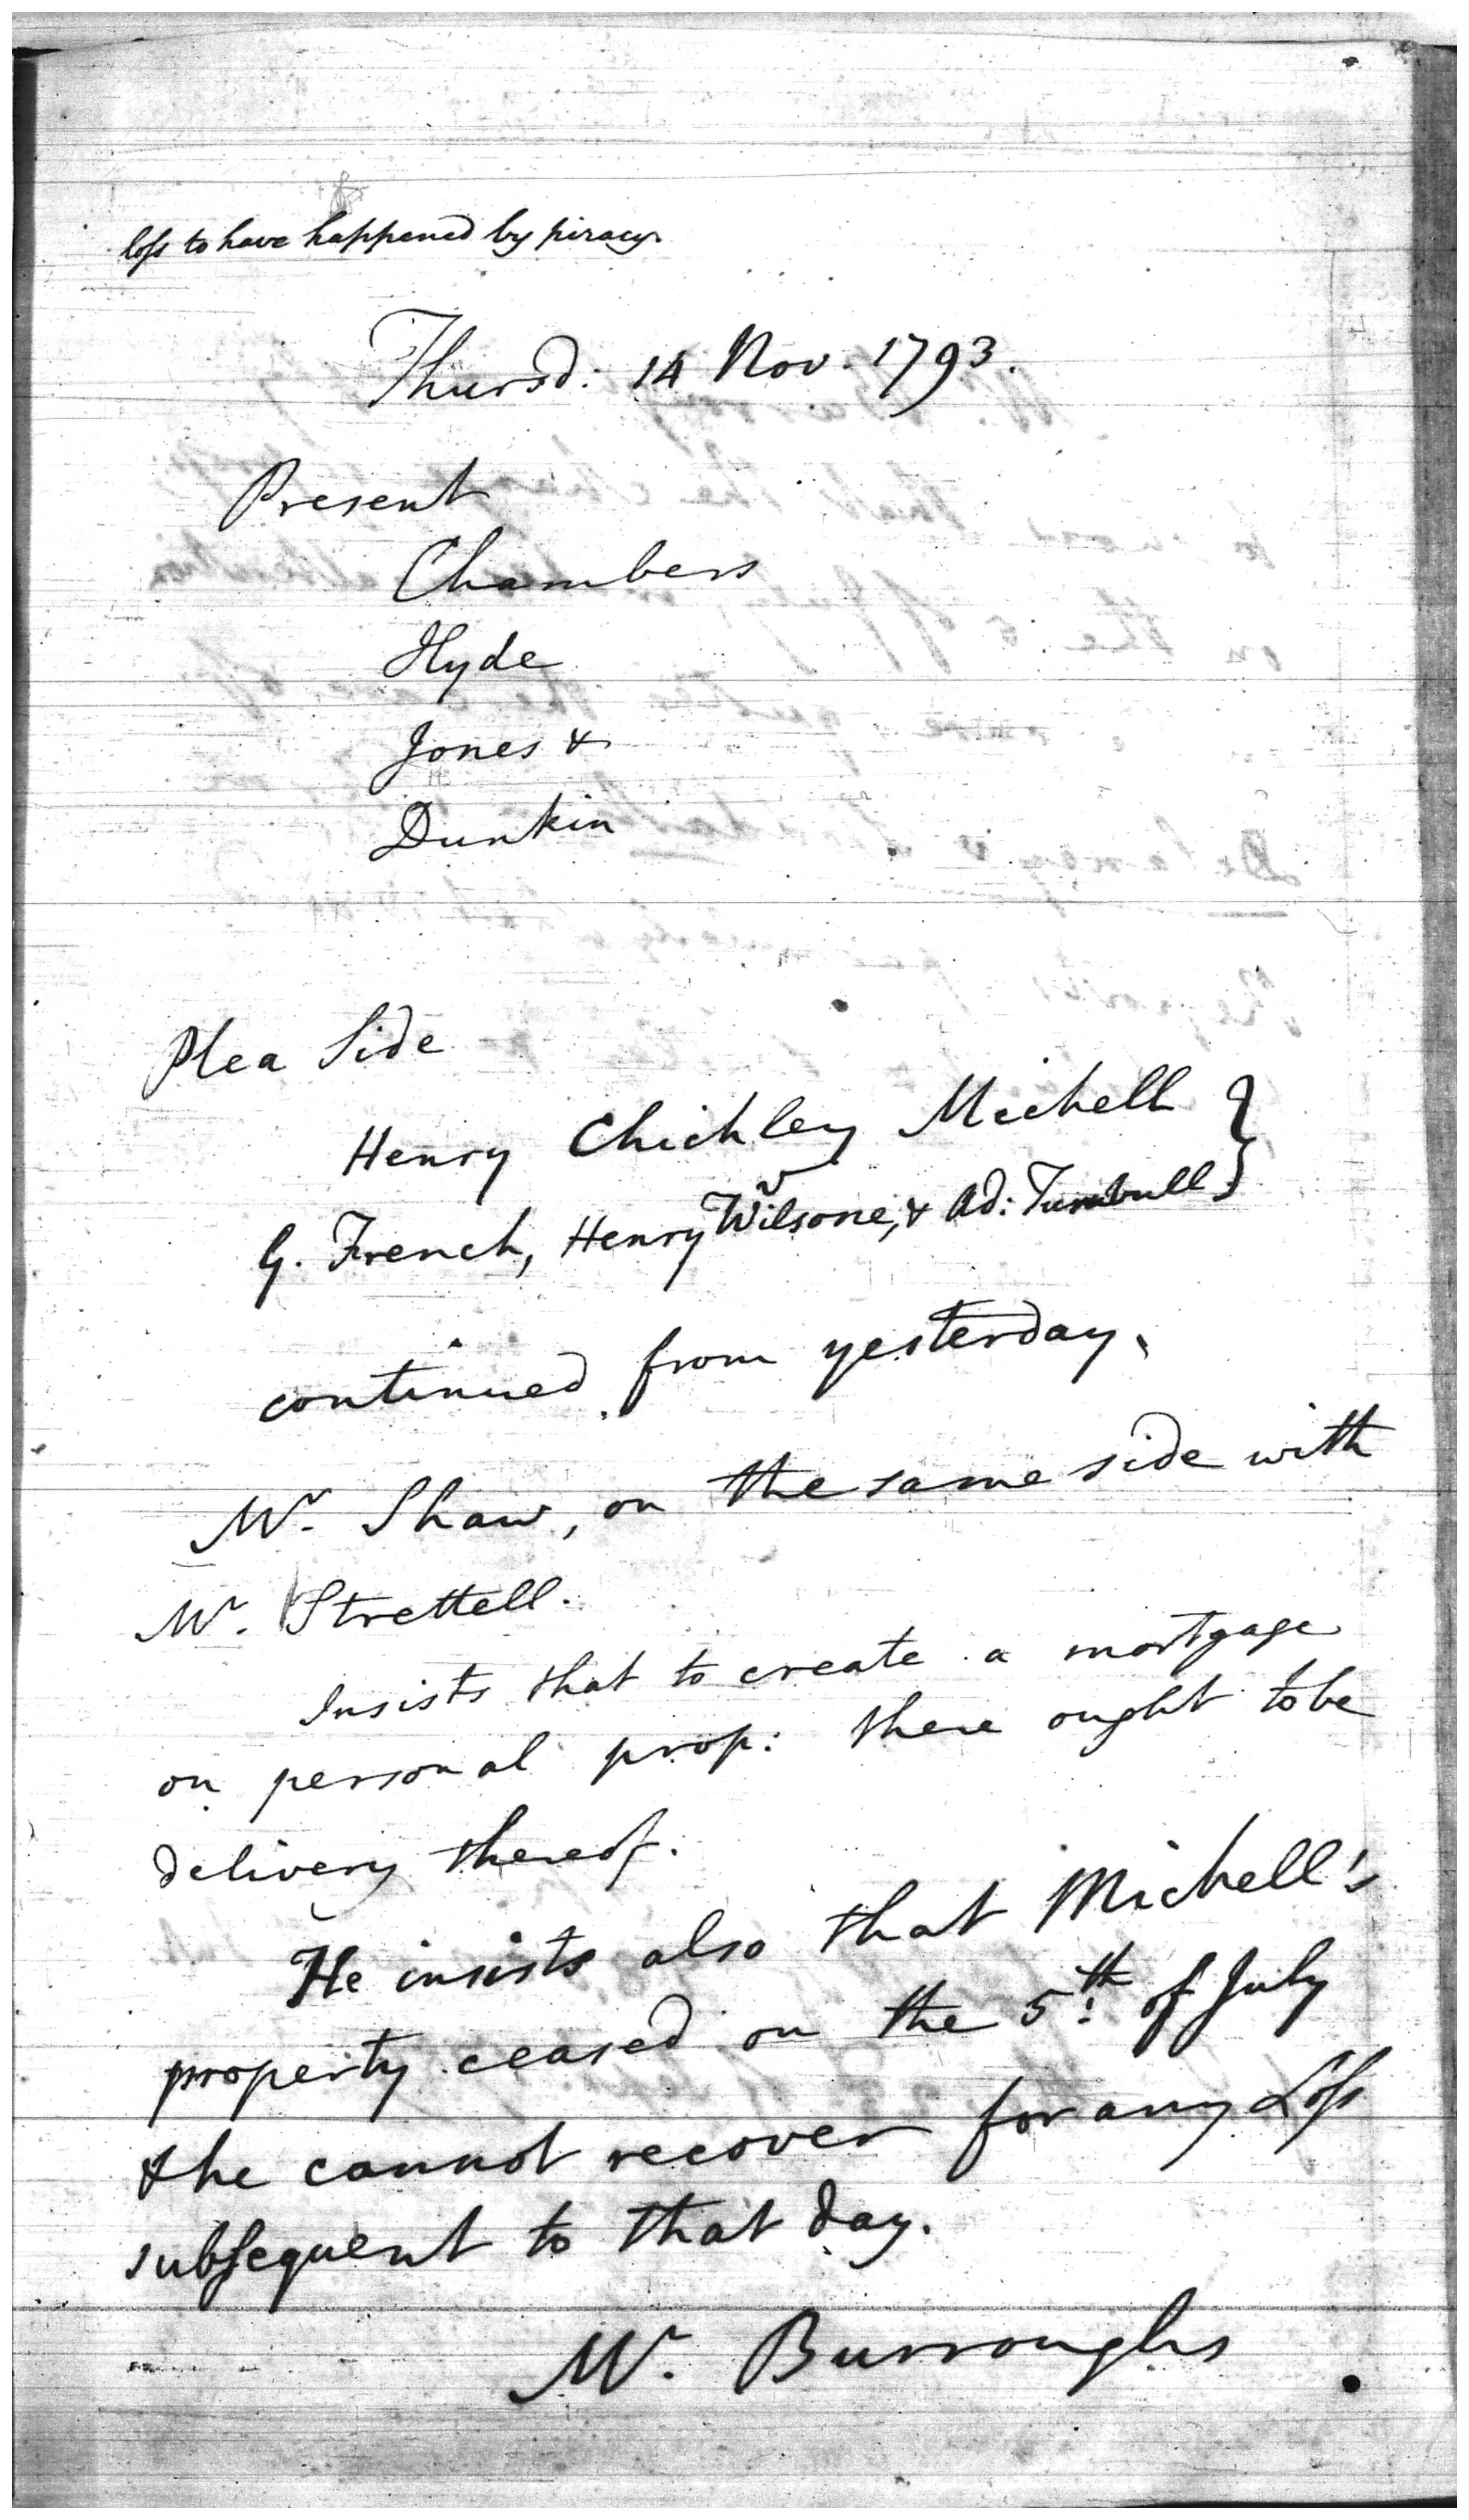 loss to have happened by piracy.
Thursd: 14 Nov. 1793.
Present
Chambers
Hyde
Jones &
Dunkin
Plea Side
Henry Chichley Michell }
v
G. French, Henry Wilsone, & Ad: Turnbull }
continued from yesterday.
Mr. Shaw, on the same side with
Mr. Strettell.
Insists that to create a mortgage
on personal prop: there ought to be
delivery thereof.
He insists also that Michell's
property ceased on the 5th. of July
& he cannot recover for any Loss
subsequent to that day.
Mr. Burroughs